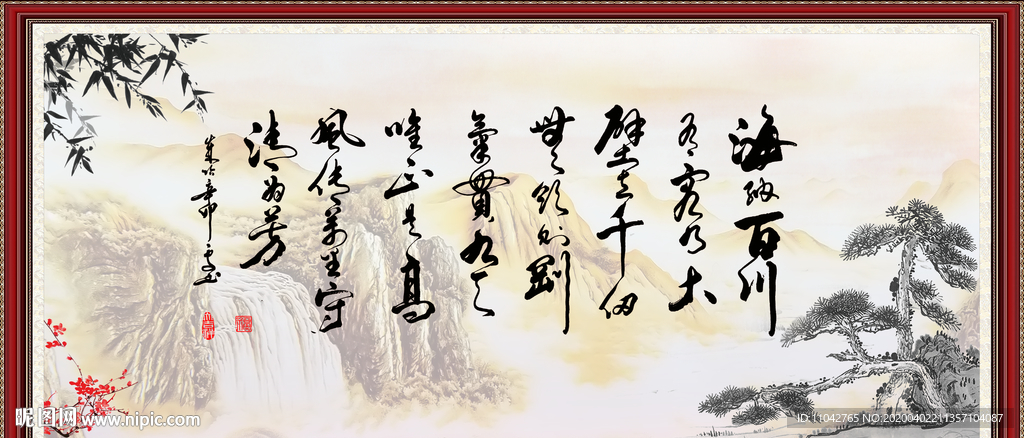 海納百川
有容乃大
壁立千仞
無欲則剛
氣貫九天
唯正是高
風傳萬里守
清為芳
昵图网 www.nipic.com
ID:11042765 NO:20200402211357104087